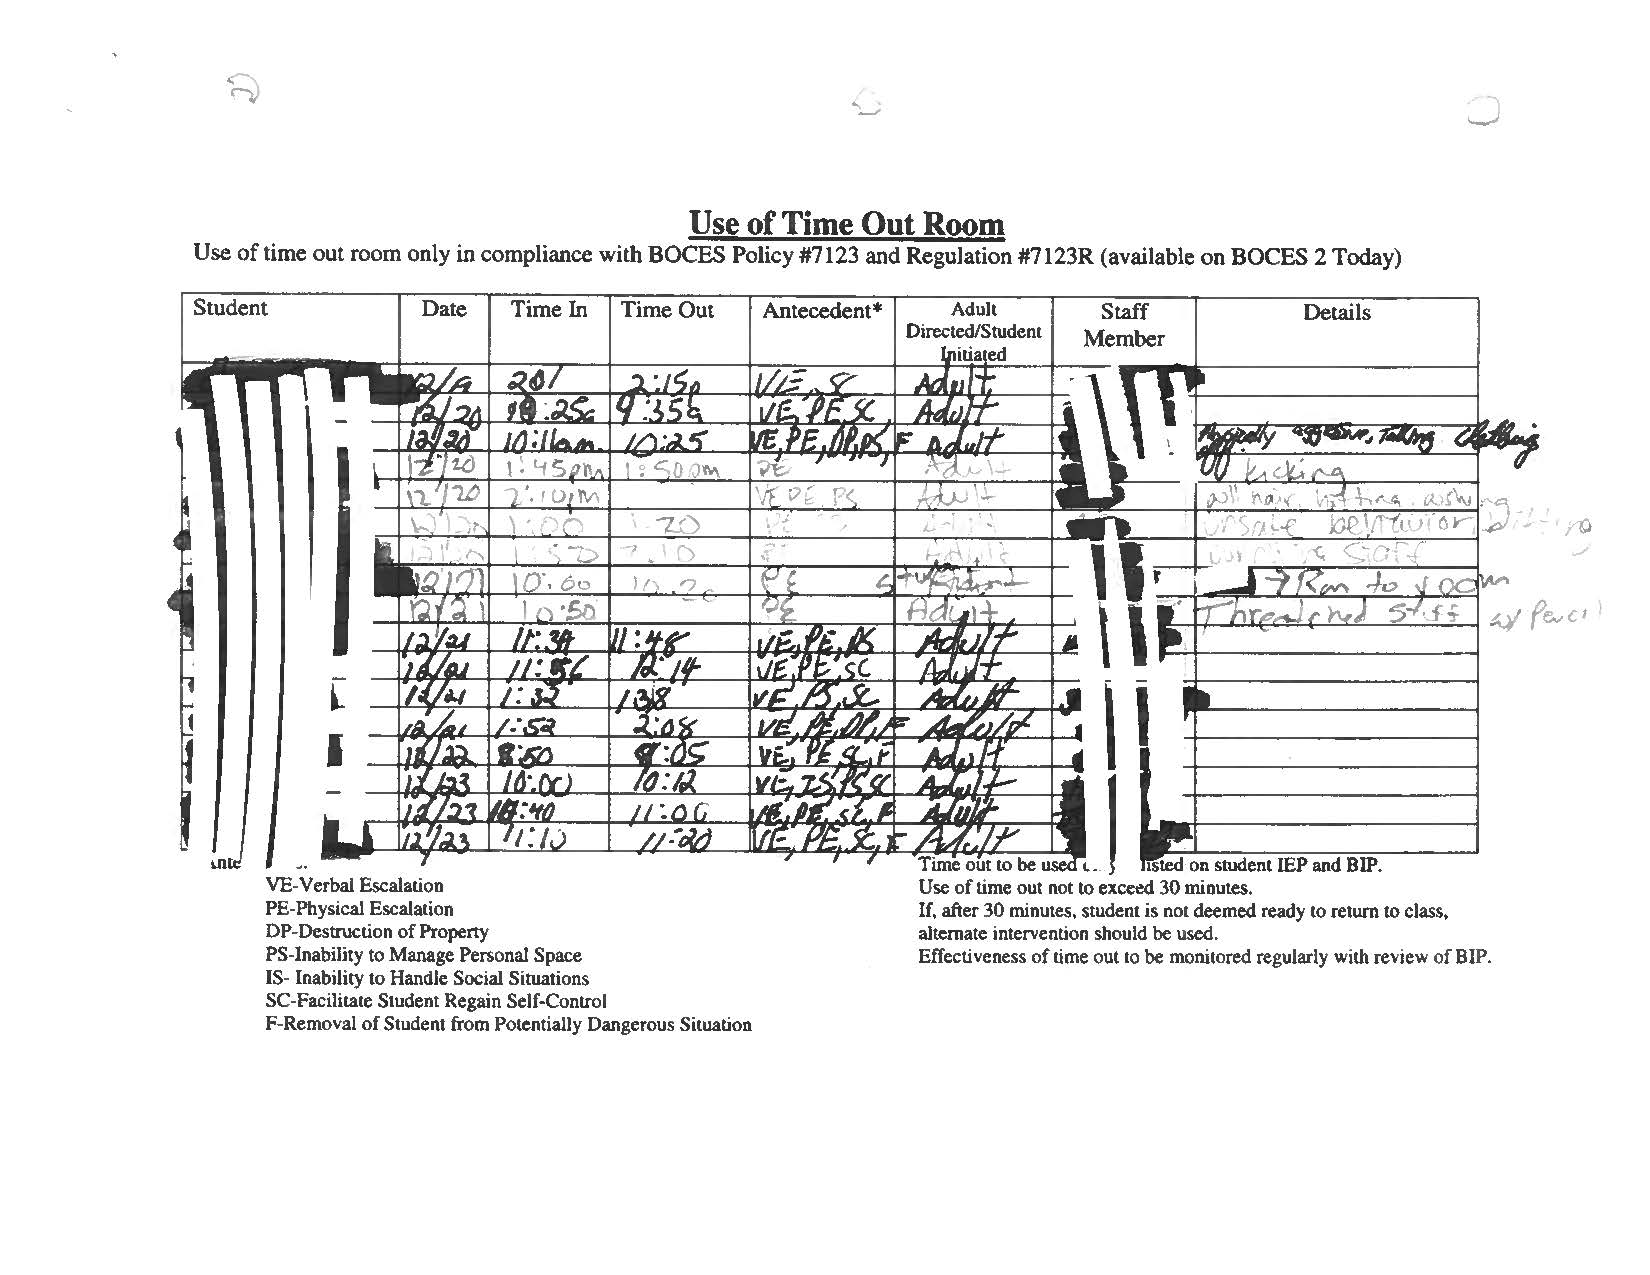 Use of Time Out Room
Use of time out room only in compliance with BOCES Policy #7123 and Regulation #7123R (available on BOCES 2 Today)
Student Date Time In Time Out Antecedent* Adult Directed/Student Initiated Staff Member Details
201 2:15p VE, SC Adult
12/20 9:35a VE, PE, SC, Adult
12/20 10:11am 10:25 VE, PE, DP, PS, F Adult aggressive, Taking Clothing off
12/20 1:45pm 1:50pm PE Adult kicking
12/20 2:10pm VE PE PS Adult pull hair, hitting
1:00 1:20 unsafe behavior
Staff
12/21 10:00 PE Student → Ran to room
12/21 10:50 PE Adult Threatened staff w/ Pencil
12/21 11:48 VE, PE, PS Adult
12/21 11:56 12:14 VE, PE, SC Adult
12/21 1:32 138 VE, PS, SC Adult
12/21 1:52 2:08 VE, PE, DP, F Adult
12/22 8:50 9:05 VE, PE SC, F Adult
12/23 10:00 10:12 VE, IS, PS, SC Adult
12/23 :40 11:00 VE, PE, SC, F Adult
12/23 11:10 11:20 VE, PE, SC, F Adult
VE-Verbal Escalation
PE-Physical Escalation
DP-Destruction of Property
PS-Inability to Manage Personal Space
IS- Inability to Handle Social Situations
SC-Facilitate Student Regain Self-Control
F-Removal of Student from Potentially Dangerous Situation
Time out to be used listed on student IEP and BIP.
Use of time out not to exceed 30 minutes.
If, after 30 minutes, student is not deemed ready to return to class,
alternate intervention should be used.
Effectiveness of time out to be monitored regularly with review of BIP.